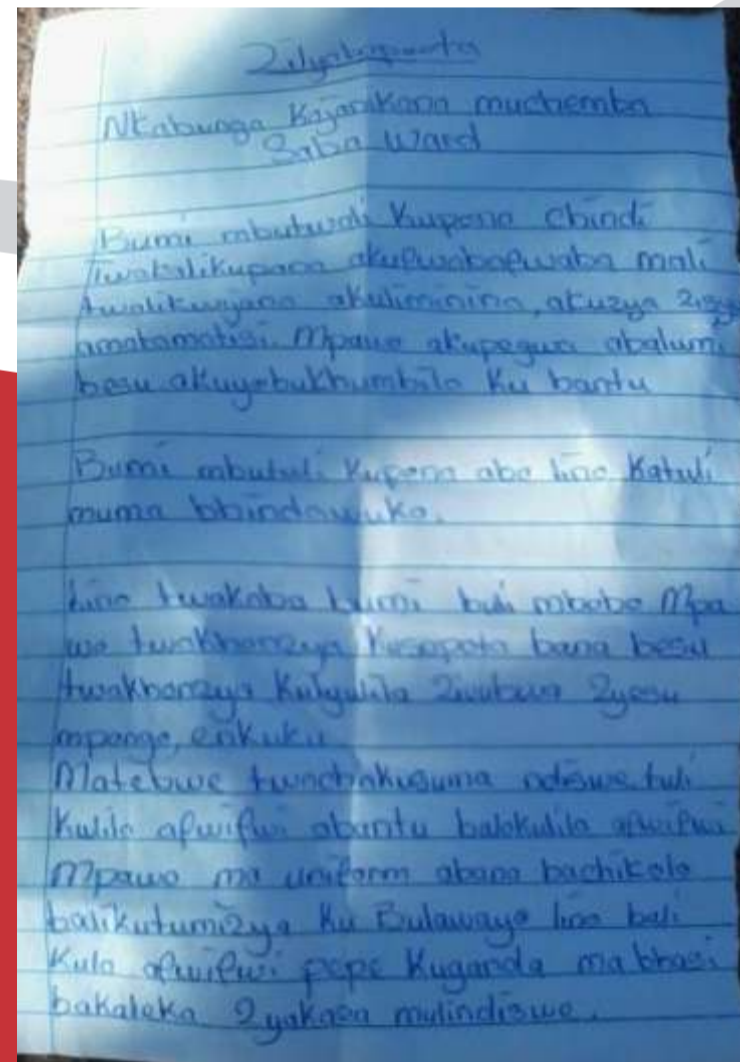 Zilyakupoota
Nkabunga Kajanikana muchemba
Saba Ward
Bumi mbutwali kupona chindi
Twatalikupana akufwabafwaba mali
twalikujana akuliminina, akuzya zizya
amatamatisi. Mpawo akupegwa abalumi
besu akuyobukhumbila Ku bantu
Bumi mbutuli kupona abo lino Katuli
muma bbindawuko.
Lino twakaba bumi buli mbobo Mpa
wo twakhonzya Kusapota bana besu
twakhonzya Kulyulila Zivubwa Zyesu
mpongo, enkuku
Matebwe twachakusuma ndiswe tuli
Kulila afwifwi abantu balokulila afwifwi
Mpawo ma uniform abana bachikolo
balikutumizya Ku Bulawayo lino bali
Kula afwifwi pepe Kuganda ma bhasi
bakaleka Zyakasa mulindiswe.